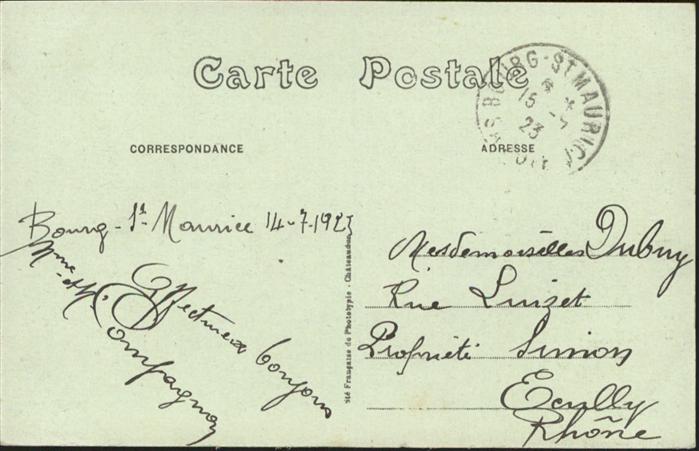 Carte Postale
BOURG-ST MAURICE
15-7
23
SAVOIE
CORRESPONDANCE
ADRESSE
Bourg-St-Maurice 14-7-1923
Affectueux bonjour
Mme et M. Compagnon
Sté Française de Phototypie - Châteaudun
Mesdemoiselles Dubuy
Rue Luizet
Propriété Simon
Ecully
Rhône